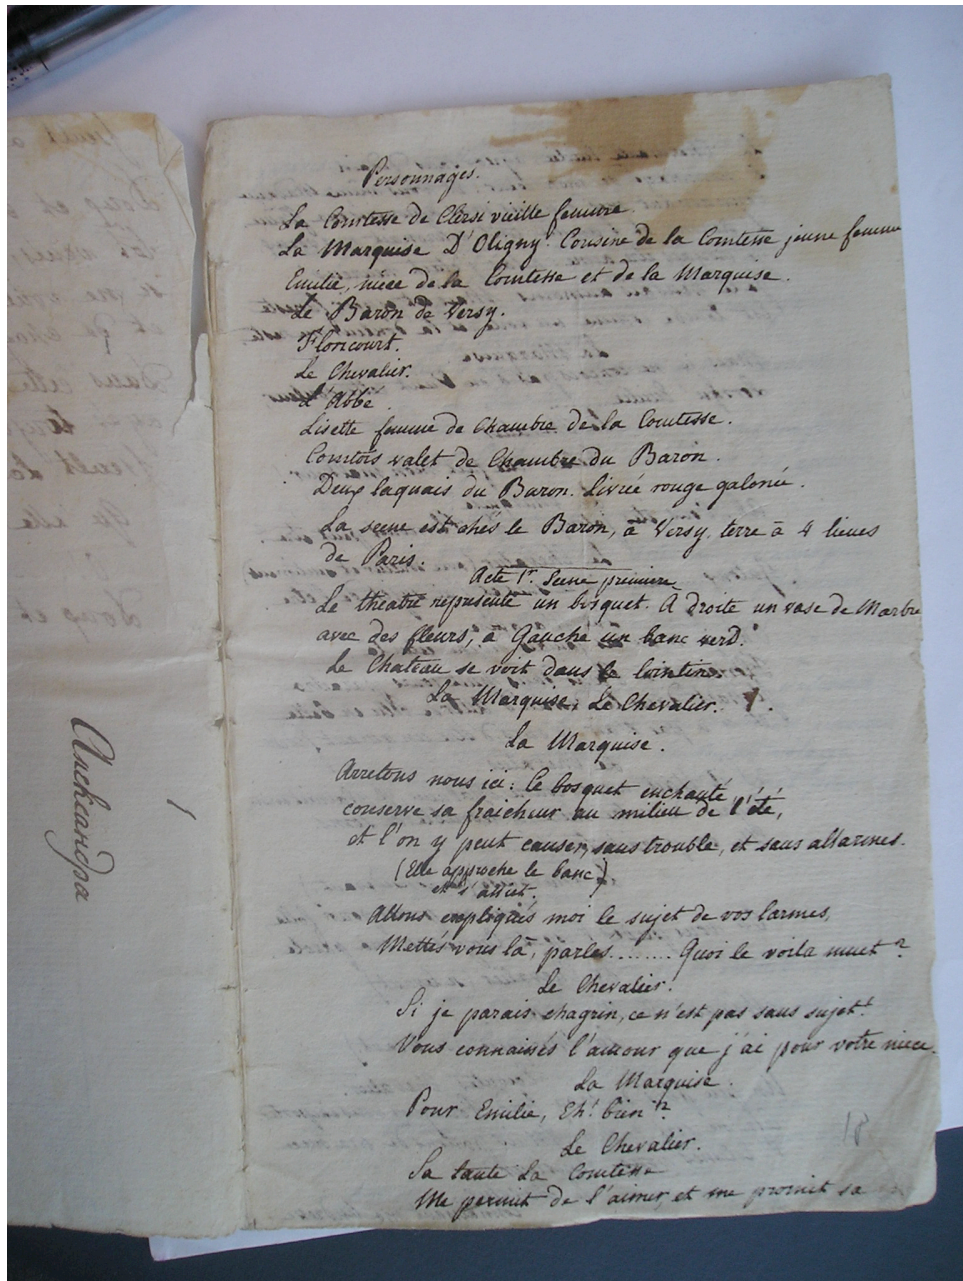 Personnages.
La Comtesse de Clersi vieille femme
La Marquise D'Oligny Cousine de la Comtesse jeune femme
Emilie, niece de la Comtesse et de la Marquise.
Le Baron de Versy.
Floricourt.
Le Chevalier.
L'Abbé
Lisette femme de Chambre de la Comtesse.
Comtois valet de Chambre du Baron.
Deux laquais du Baron. Livrée rouge galonée.
La scene est chés le Baron, à Versy, terre à 4 lieues
de Paris.
Acte 1r. Scene premiere
Le theatre represente un bosquet. A droite un vase de Marbre
avec des fleurs, à Gauche un banc verd.
Le Chateau se voit dans le lointin.
La Marquise, Le Chevalier.
La Marquise.
Arretons nous ici: Ce bosquet enchanté
conserve sa fraicheur au milieu de l'été,
et l'on y peut causer, sans trouble, et sans allarmes.
(Elle approche le banc)
et s'assiet.
Allons expliqués moi le sujet de vos larmes,
Mettés vous là, parles........ Quoi le voila muet?
Le Chevalier.
Si je parais chagrin, ce n'est pas sans sujet!
Vous connaissés l'amour que j'ai pour votre niece.
La Marquise.
Pour Emilie, Eh! bien!?
Le Chevalier.
Sa tante La Comtesse
Me permit de l'aimer, et me promit sa
18